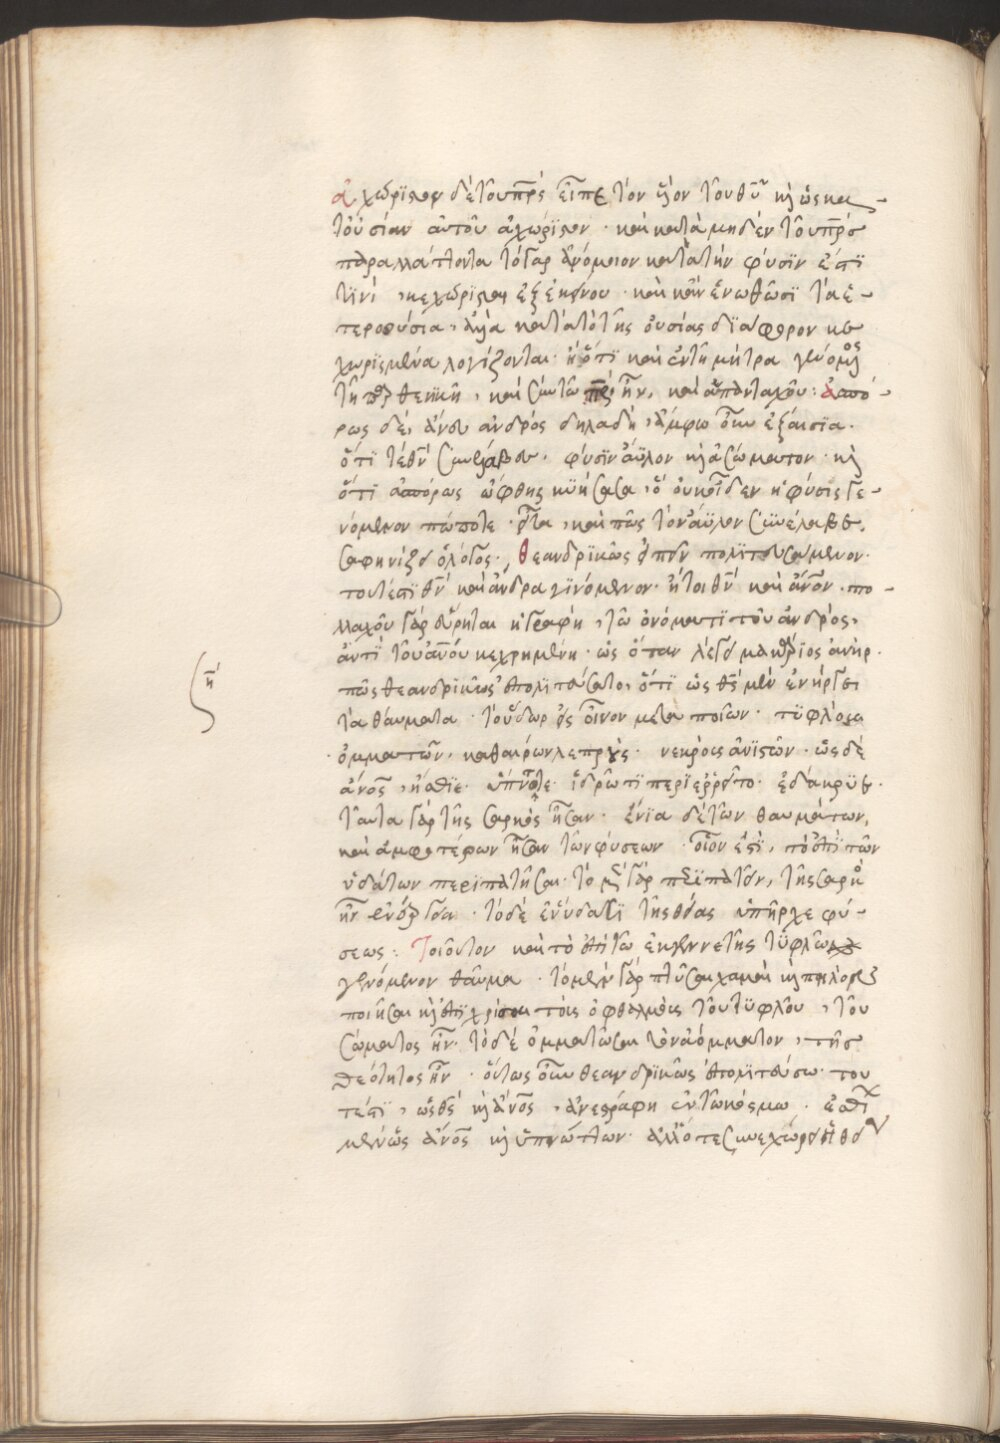 ἀχώριστον δὲ τοῦ πρς εἶπε τὸν υἱὸν τοῦ θυ κὴ ὡς κα
τ οὐσίαν αὐτοῦ ἀχώριστον · καὶ κατὰ μηδὲν τοῦ πρς
παραλλάττοντα τὸ γὰρ ἀνόμοιον κατὰ τὴν φύσϊν ἐστϊ
τϊνὶ , κεχώρϊσται ἐξ ἐκείνου · καὶ κἂν ἑνωθῶσϊ τὰ ἑ
τεροούσια , ἀλλὰ κατὰ τὸ τῆς οὐσίας δϊάφορον κε
χωρισμένα λογίζονται · ἢ ὅτϊ καὶ ἐν τῆ μήτρα γενόμος
τῆ παρθενϊκῆ , καὶ σὺν τῶ πρϊ ἦν , καὶ ἁπανταχοῦ : ἀσπό
ρως δὲ , ἄνευ ἀνδρὸς δηλαδὴ , ἄμφω οὖν ἐξαίσϊα ·
ὅτϊ τε θν συνέλαβεν , φύσϊν ἄϋλον κὴ ἀσώματον · κὴ
ὅτϊ ἀσπόρως ὤφθης κϋήσασα , ὃ οὐκ οἶδεν ἡ φύσις γε
νόμενον πώποτε · εἶτα , καὶ πῶς τὸν ἄϋλον συνέλαβε ,
σαφηνίζει ὁ λόγος · θεανδρϊκῶς εἰπεῖν πολϊτευσάμενον ·
τουτέστϊ θν καὶ ἄνδρα γϊνόμενον · ἤτοι θν καὶ ἄνον · πο
λλαχοῦ γὰρ εὕρηται ἡ γραφὴ , τῶ ὀνόματϊ τοῦ ἀνδρὸς ,
ἀντὶ τοῦ ἀνου κεχρημένη · ὡς ὅταν λέγει μακάριος ἀνὴρ ·
πῶς θεανδρϊκῶς ἐπολϊτεύσατο , ὅτϊ ὡς θς μὲν ἐνήργει
τὰ θαύματα · τὸ ὕδωρ εἰς οἶνον μεταποιῶν · τϋφλοὺς
ὀμματῶν , καθαίρων λεπροὺς · νεκροὺς ἀνϊστῶν · ὡς δὲ
ἄνος , ἤσθϊε · ὕπνοττε · ἱδρῶτϊ περϊερρεῖτο · ἐδάκρϋε ·
ταῦτα γὰρ τῆς σαρκὸς ἦσαν · ἔνϊα δὲ τῶν θαυμάτων ,
καὶ ἀμφοτέρων ἦσαν τῶν φύσεων · οἷον ἐστϊ , τὸ ἐπὶ τῶν
ὑδάτων περϊπατῆσαι · τὸ μὲν γὰρ περϊπατεῖν , τῆς σαρκὸς
ἦν ἐνέργεια · τὸ δὲ ἐν ὕδατϊ τῆς θείας ὑπῆρχε φύ
σεως : Τοιοῦτον καὶ τὸ ἐπὶ τῶ ἐκ γεννετῆς τϋφλῶ
γενόμενον θαῦμα · τὸ μὲν γὰρ πτῦσαι χαμαὶ κὴ πηλὸν
ποιῆσαι κὴ ἐπϊχρίσαι τοὺς ὀφθαλμοὺς τοῦ τϋφλοῦ , τοῦ
σώματος ἦν · τὸ δὲ ὀμματῶσαι τὸν ἀόμματον , τῆς
θεότητος ἦν · οὕτως οὖν θεανδρϊκῶς ἐπολϊτεύσω · του
τέστϊ , ὡς θς κὴ ἄνος , ἀνεστράφη ἐν τῶ κόσμω · ἐσθΐ
μὲν ὡς ἄνος κὴ ὑπνώττων · ἄλλοτε συνεχώρει
ἤ